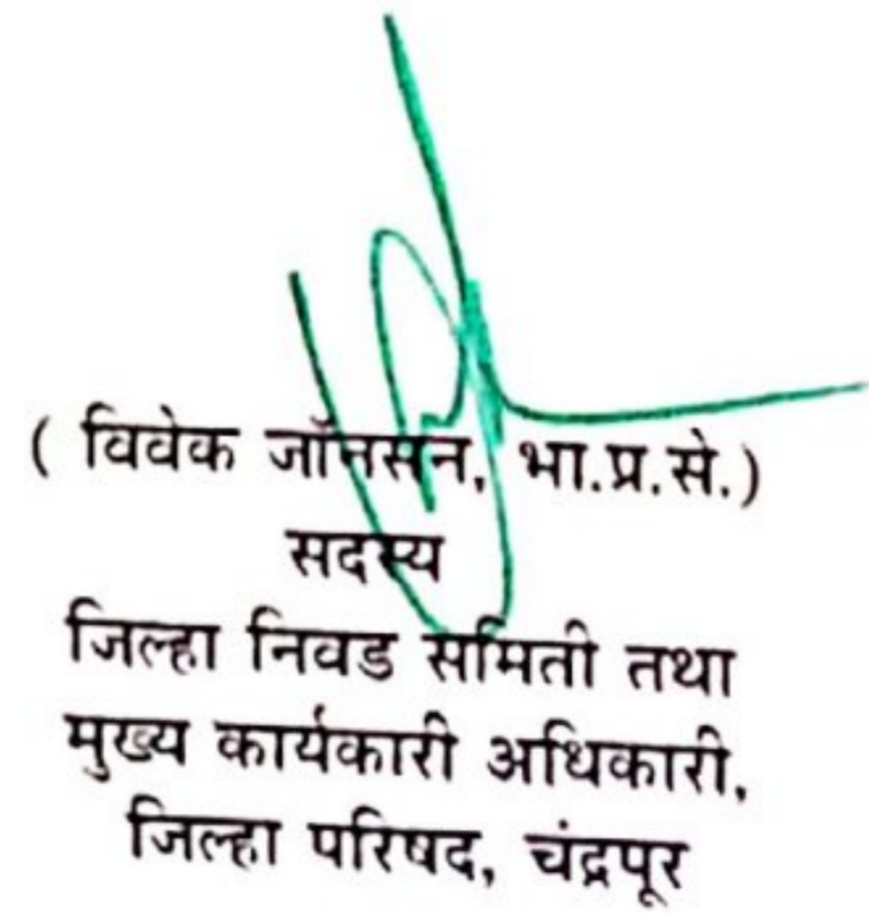 ( विवेक जॉनसन, भा.प्र.से.)
सदस्य
जिल्हा निवड समिती तथा
मुख्य कार्यकारी अधिकारी,
जिल्हा परिषद, चंद्रपूर